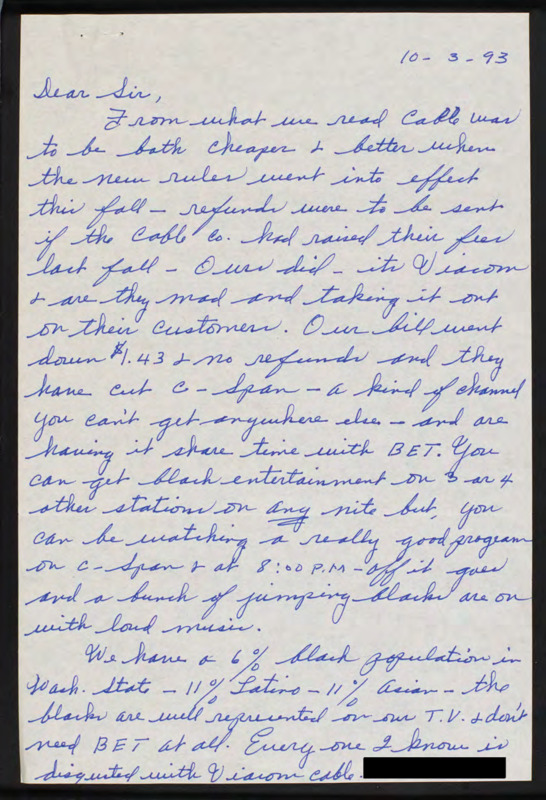 10-3-93
Dear Sir,
From what we read Cable was
to be both cheaper & better when
the new rules went into effect
this fall - refunds were to be sent
if the Cable Co. had raised their fees
last fall - Ours did - its Viacom
& are they mad and taking it out
on their customers. Our bill went
down $1.43 & no refunds and they
have cut C-Span - a kind of channel
you can't get anywhere else - and are
having it share time with BET. You
can get black entertainment on 3 or 4
other stations on any nite but, you
can be watching a really good program
on C-Span & at 8:00 P.M - off it goes
and a bunch of jumping blacks are on
with loud music.
We have a 6% black population in
Wash. State - 11% Latino - 11% Asian - the
blacks are well represented on our T.V. & don't
need BET at all. Every one I know is
disgusted with Viacom cable.